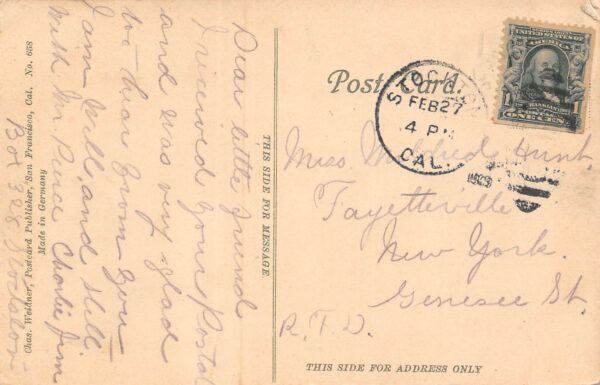 Dear little friend
I received your Postal
and was very glad
too hear from you
I am Well, and still
With Mr Pierce Charlie Jim
Box 308 Stockton
Chas. Weidner, Postcard Publisher, San Francisco, Cal. No. 658
Made in Germany
THIS SIDE FOR MESSAGE.
Post Card.
STOCKTON
FEB 27
4 PM
CAL.
UNITED STATES OF
AMERICA
FRANKLIN
1
ONE CENT
Miss Mildred Hunt,
Fayetteville
New York.
Genesee St.
R.F.D.
THIS SIDE FOR ADDRESS ONLY